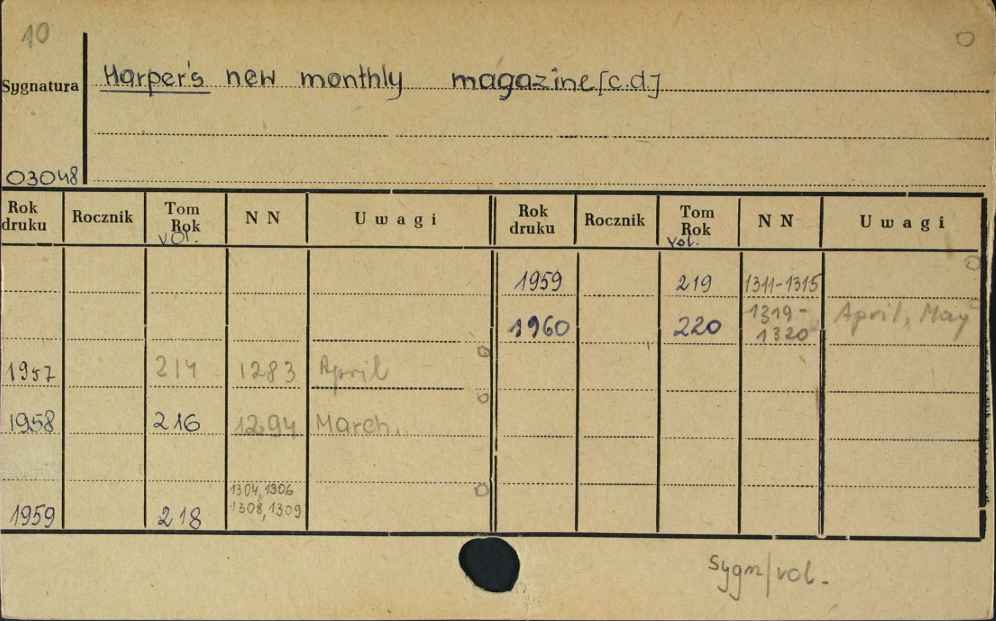 10
Sygnatura
Harper's new monthly magazine [c.d.]
03048
Rok druku Rocznik Tom Rok vol. NN Uwagi Rok druku Rocznik Tom Rok vol. NN Uwagi
1959 219 1311-1315
1960 220 1319-1320 April, May
1957 214 1283 April
1958 216 1294 March.
1959 218 1304, 1306
1308, 1309
Sygn/vol.